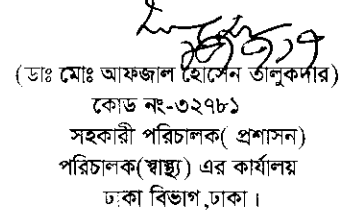 (ডাঃ মোঃ আফজাল হোসেন তালুকদার)
কোড নং-৩২৭৮১
সহকারী পরিচালক( প্রশাসন)
পরিচালক(স্বাস্থ্য) এর কার্যালয়
ঢাকা বিভাগ ,ঢাকা।